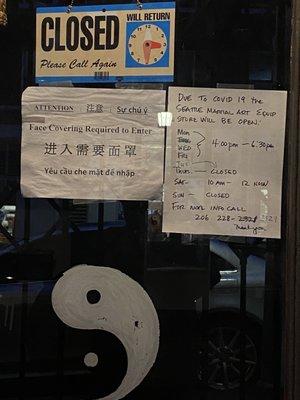 CLOSED
WILL RETURN
Please Call Again
ATTENTION 注意 Sự chú ý
Face Covering Required to Enter
进入需要面罩
Yêu cầu che mặt để nhập
DUE TO COVID 19 THE
SEATTLE MARTIAL ART EQUIP
STORE WILL BE OPEN.
MON
TUES
WED 4:00 pm — 6:30 pm
FRI
THURS — CLOSED
SAT — 10 AM — 12 NOON
SUN — CLOSED
FOR MORE INFO CALL
206 228-
Thank you